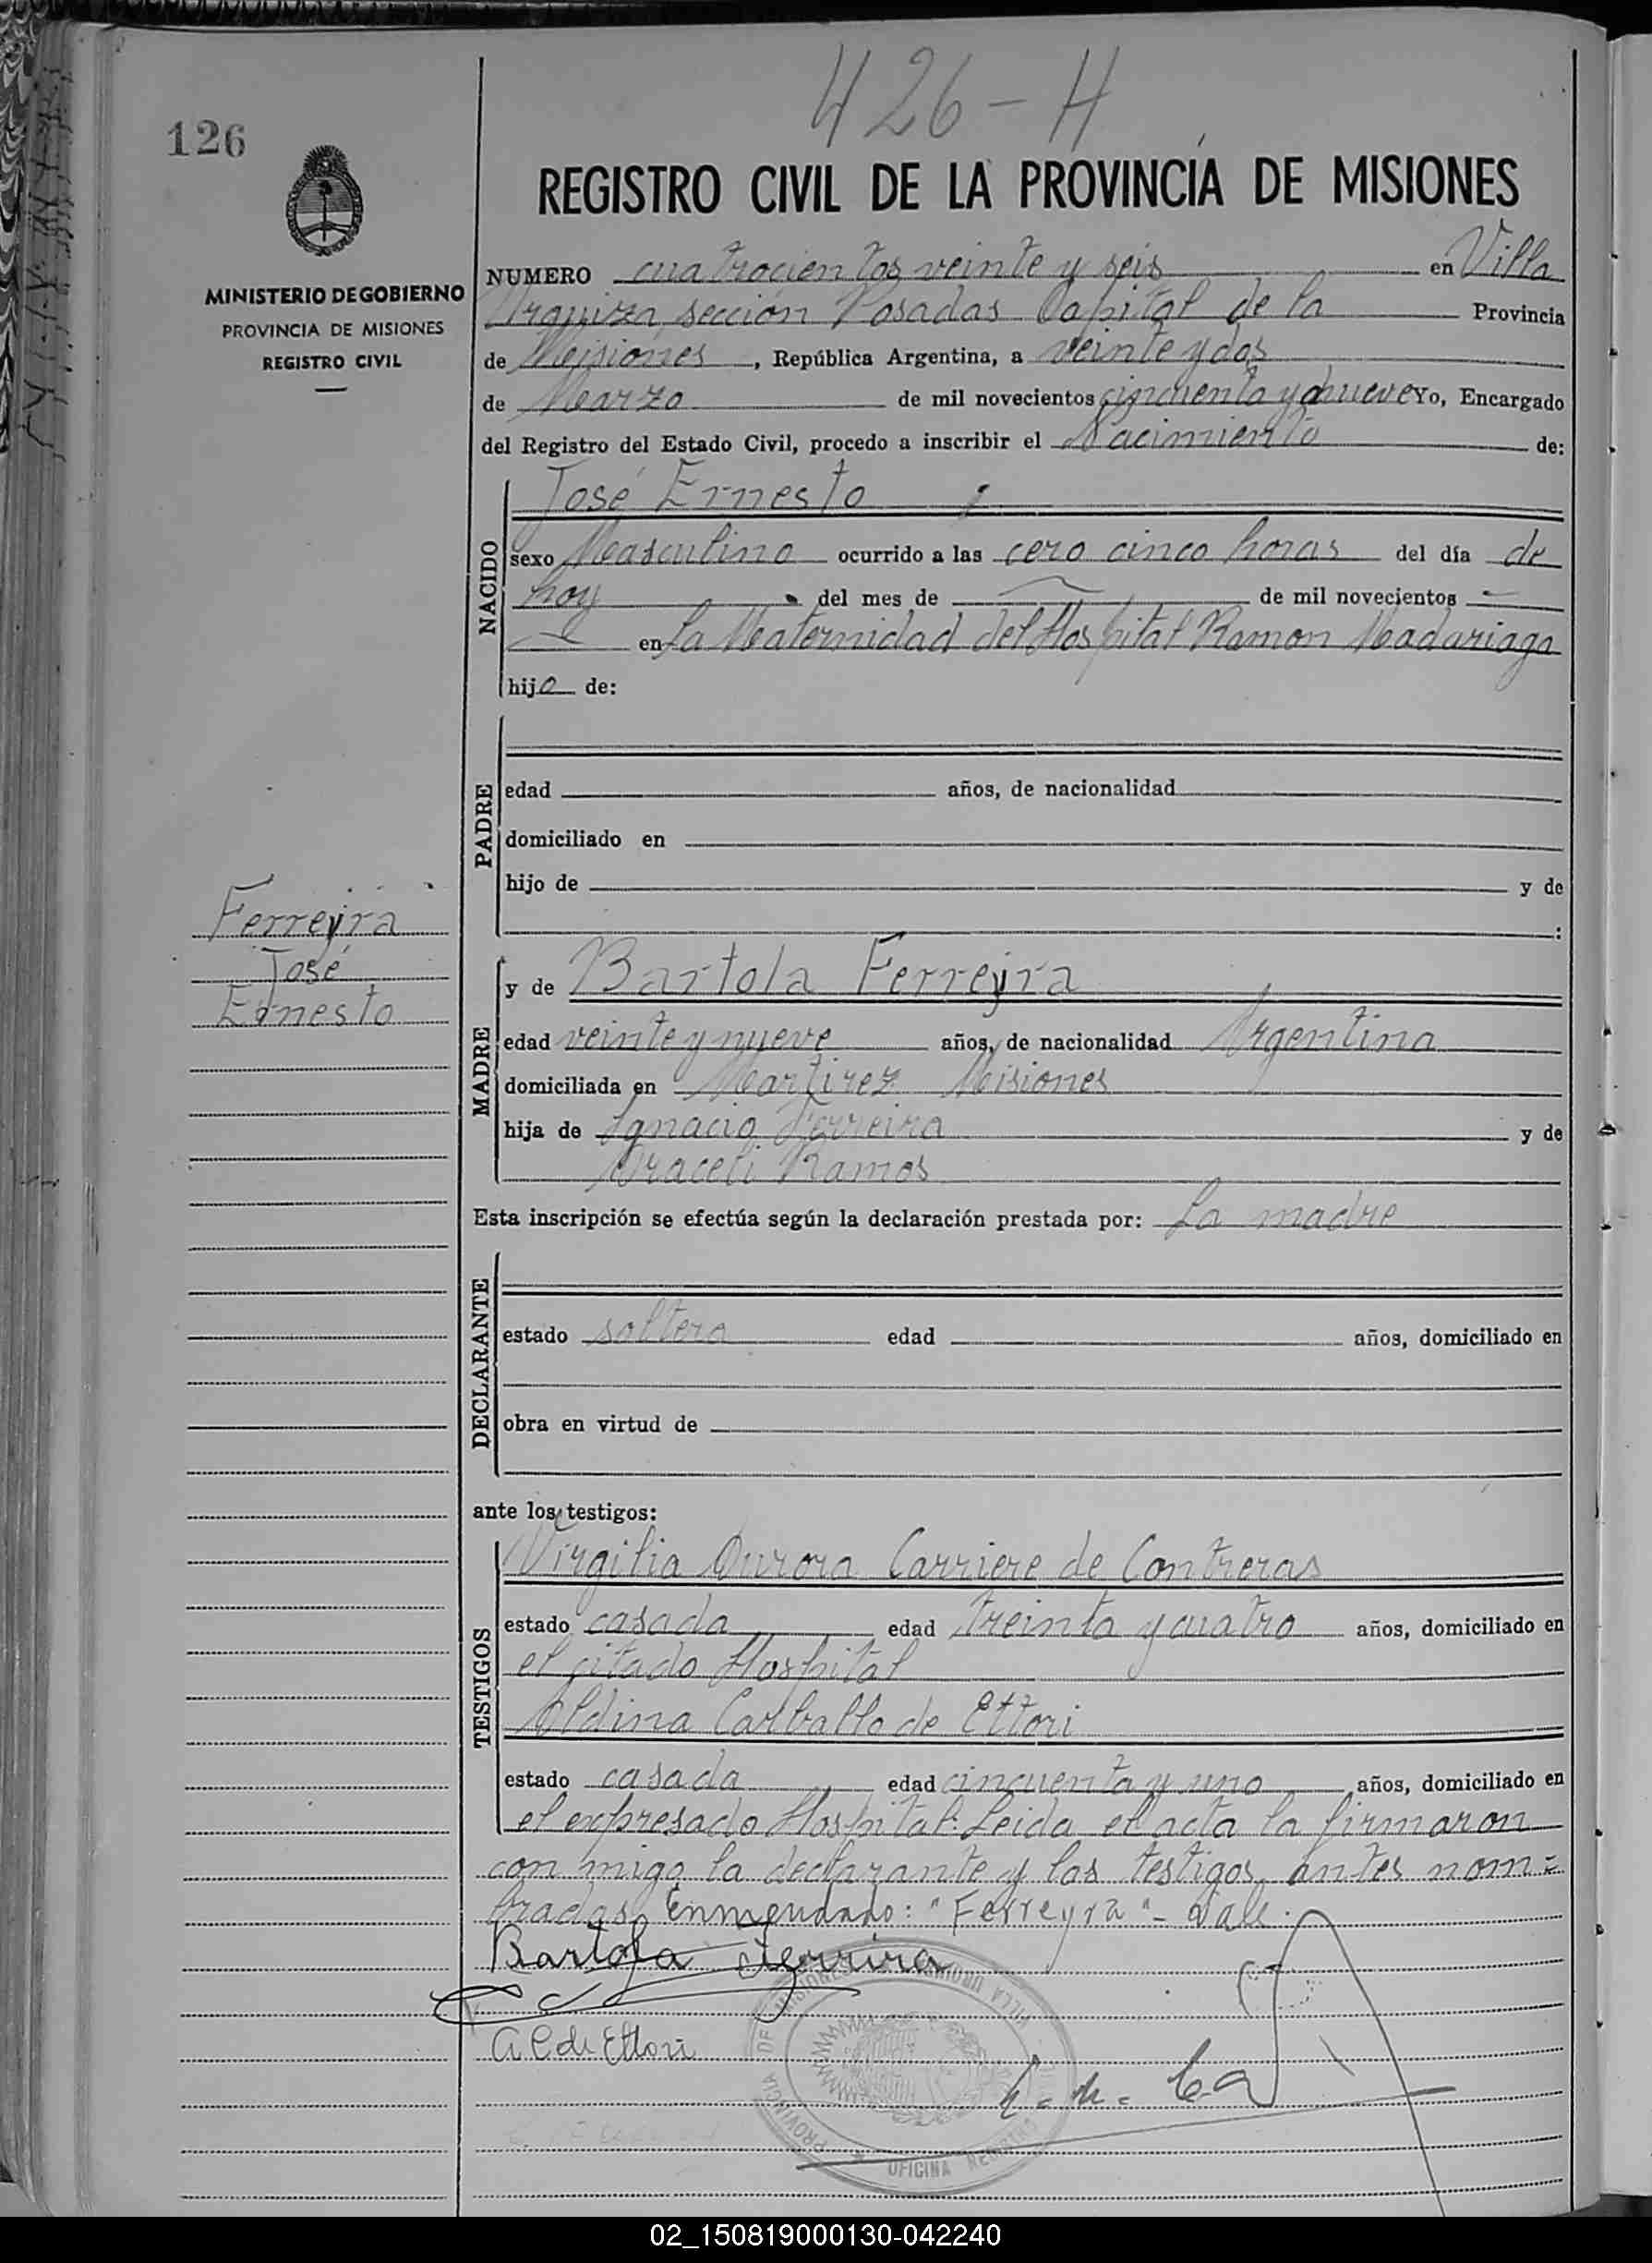 426-H
126
REGISTRO CIVIL DE LA PROVINCIA DE MISIONES
MINISTERIO DE GOBIERNO
PROVINCIA DE MISIONES
REGISTRO CIVIL
NUMERO cuatrocientos veinte y seis en Villa
Urquiza sección Posadas Capital de la Provincia
de Misiones, República Argentina, a veinte y dos
de Marzo de mil novecientos cincuenta y nueve Yo, Encargado
del Registro del Estado Civil, procedo a inscribir el Nacimiento de:
NACIDO
José Ernesto
sexo Masculino ocurrido a las cero cinco horas del día de
hoy del mes de de mil novecientos
en La Maternidad del Hospital Ramon Madariaga
hijo de:
PADRE
edad años, de nacionalidad
domiciliado en
hijo de y de
:
Ferreyra
José
Ernesto
MADRE
y de Bartola Ferreyra
edad veinte y nueve años, de nacionalidad Argentina
domiciliada en Martirez Misiones
hija de Ignacio Ferreira y de
Araceli Ramos
Esta inscripción se efectúa según la declaración prestada por: La madre
DECLARANTE
estado soltera edad años, domiciliado en
obra en virtud de
ante los testigos:
TESTIGOS
Virgilia Aurora Carriere de Contreras
estado casada edad treinta y cuatro años, domiciliado en
el citado Hospital
Aldina Carballo de Ettori
estado casada edad cincuenta y uno años, domiciliado en
el expresado Hospital: Leida el acta la firmaron
con migo la declarante y las testigos antes nom=
bradas. Enmendado: "Ferreyra"- Vale.
Bartola Ferreira
A C de Ettori
PROVINCIA DE MISIONES
VILLA URQUIZA
OFICINA REGISTRO
02_150819000130-042240